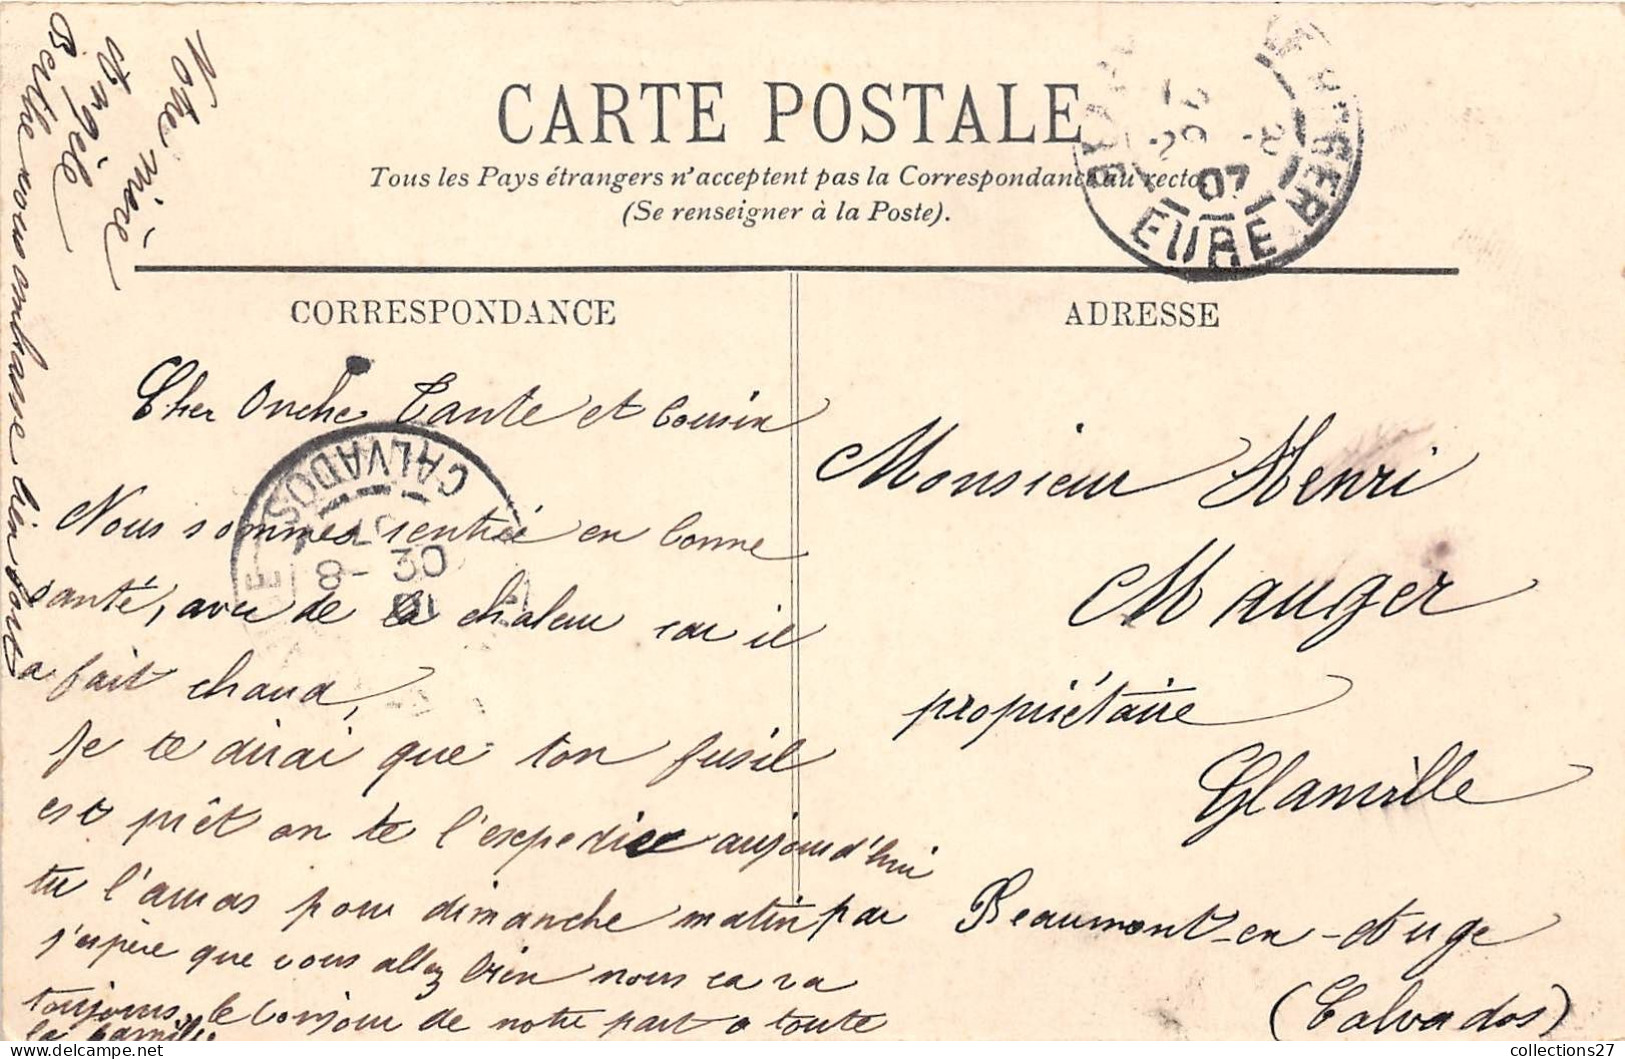 CARTE POSTALE
Tous les Pays étrangers n'acceptent pas la Correspondance au recto
(Se renseigner à la Poste).
CORRESPONDANCE
Cher Onche Tante et Cousin
Nous sommes rentrée en bonne
santé, avec de la chaleur car il
a fait chaud,
Je te dirai que ton fusil
est prêt on te l'expedie aujourd'hui
tu l'auras pour dimanche matin par
j'espère que vous allez bien nous ca va
toujours, le bonjour de notre part a toute
la famille
Votre nièce
Angèle
Berthe vous embrasse bien fort
ADRESSE
Monsieur Henri
Mauger
propriétaire
Glanville
Beaumont-en-Auge
(Calvados)
07
EURE
CALVADOS
8-30
collections27